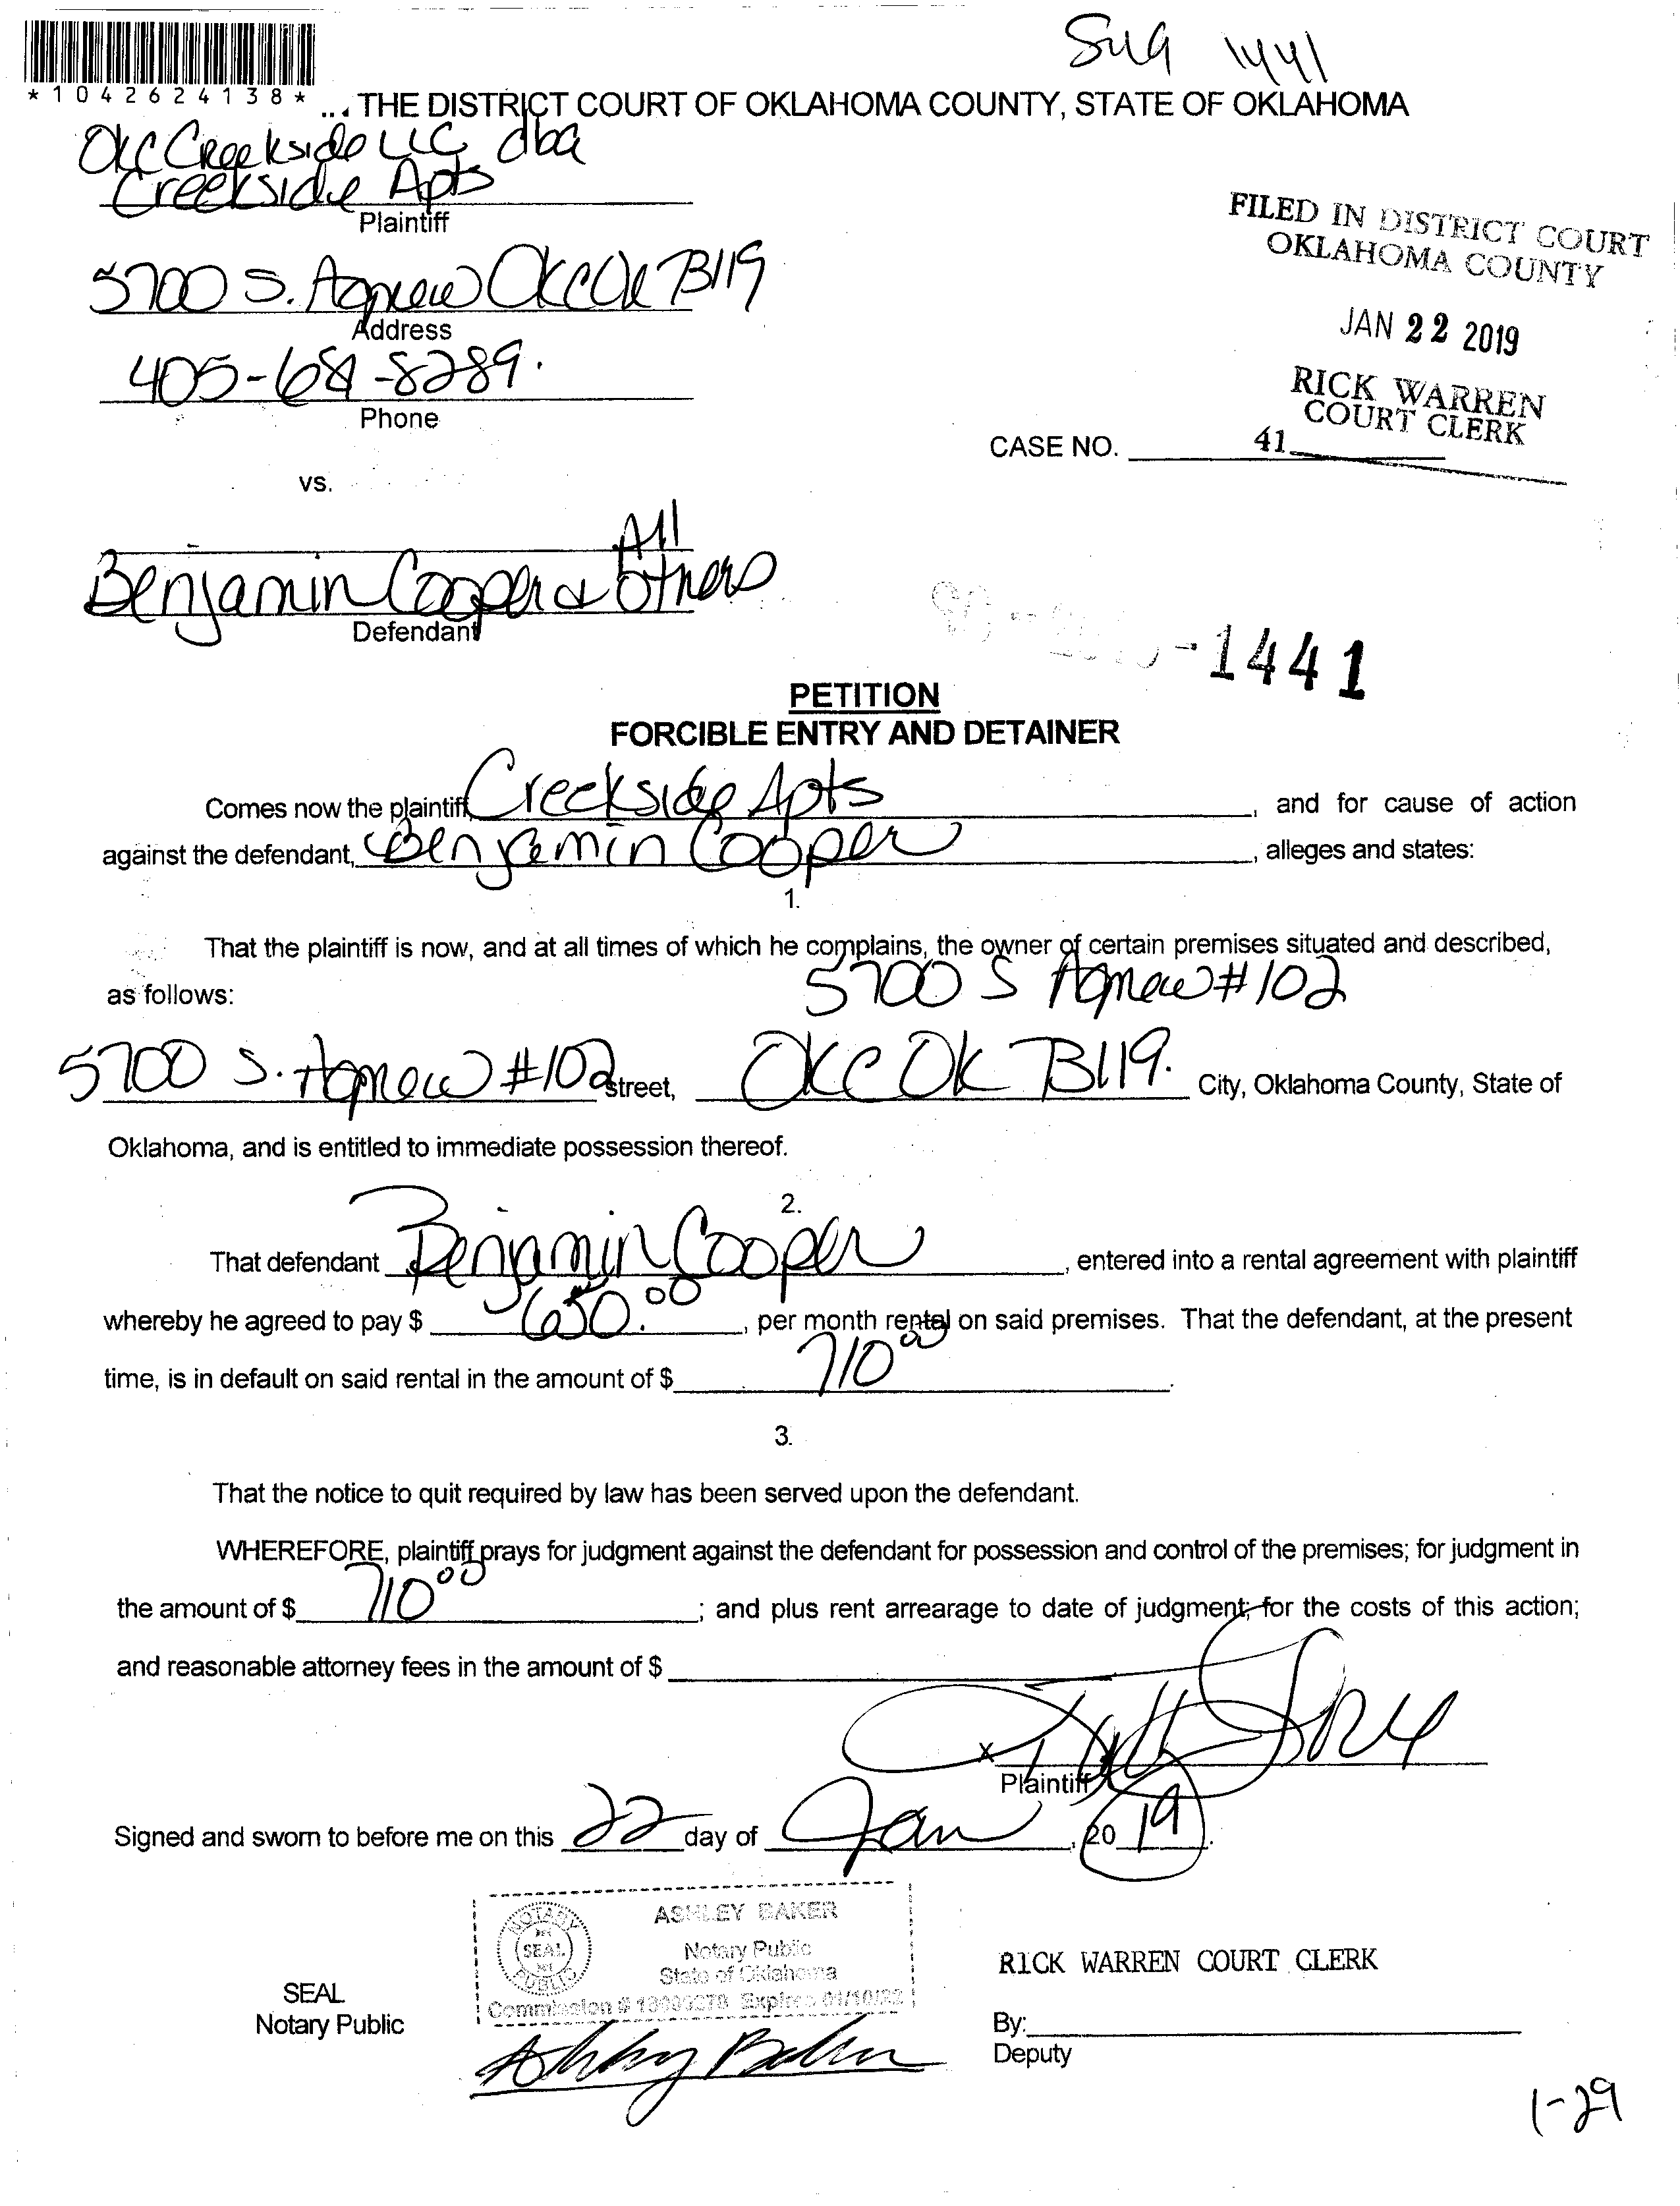 Sug 1441
*1042624138*
... THE DISTRICT COURT OF OKLAHOMA COUNTY, STATE OF OKLAHOMA
OKC Creekside LLC dba
Creekside Apts
Plaintiff
FILED IN DISTRICT COURT
OKLAHOMA COUNTY
5700 S. Agnew OKC Ok 73119
Address
JAN 22 2019
405-681-8289.
Phone
RICK WARREN
COURT CLERK
CASE NO. 41
vs.
All
Benjamin Cooper & Others
Defendant
-1441
PETITION
FORCIBLE ENTRY AND DETAINER
Comes now the plaintiff, Creekside Apts, and for cause of action
against the defendant, Benjamin Cooper, alleges and states:
1.
That the plaintiff is now, and at all times of which he complains, the owner of certain premises situated and described,
as follows: 5700 S Agnew #102
5700 S. Agnew #102 street, OKC OK 73119. City, Oklahoma County, State of
Oklahoma, and is entitled to immediate possession thereof.
2.
That defendant Benjamin Cooper, entered into a rental agreement with plaintiff
whereby he agreed to pay $ 650.00, per month rental on said premises. That the defendant, at the present
time, is in default on said rental in the amount of $ 710 00.
3.
That the notice to quit required by law has been served upon the defendant.
WHEREFORE, plaintiff prays for judgment against the defendant for possession and control of the premises; for judgment in
the amount of $ 710 00; and plus rent arrearage to date of judgment; for the costs of this action;
and reasonable attorney fees in the amount of $
x
Plaintiff
Signed and sworn to before me on this 22 day of Jan, 20 19.
ASHLEY BAKER
NOTARY SEAL PUBLIC
Notary Public
State of Oklahoma
Commission # Expires 01/10/22
SEAL
Notary Public
Ashley Baker
RICK WARREN COURT CLERK
By:
Deputy
1-29